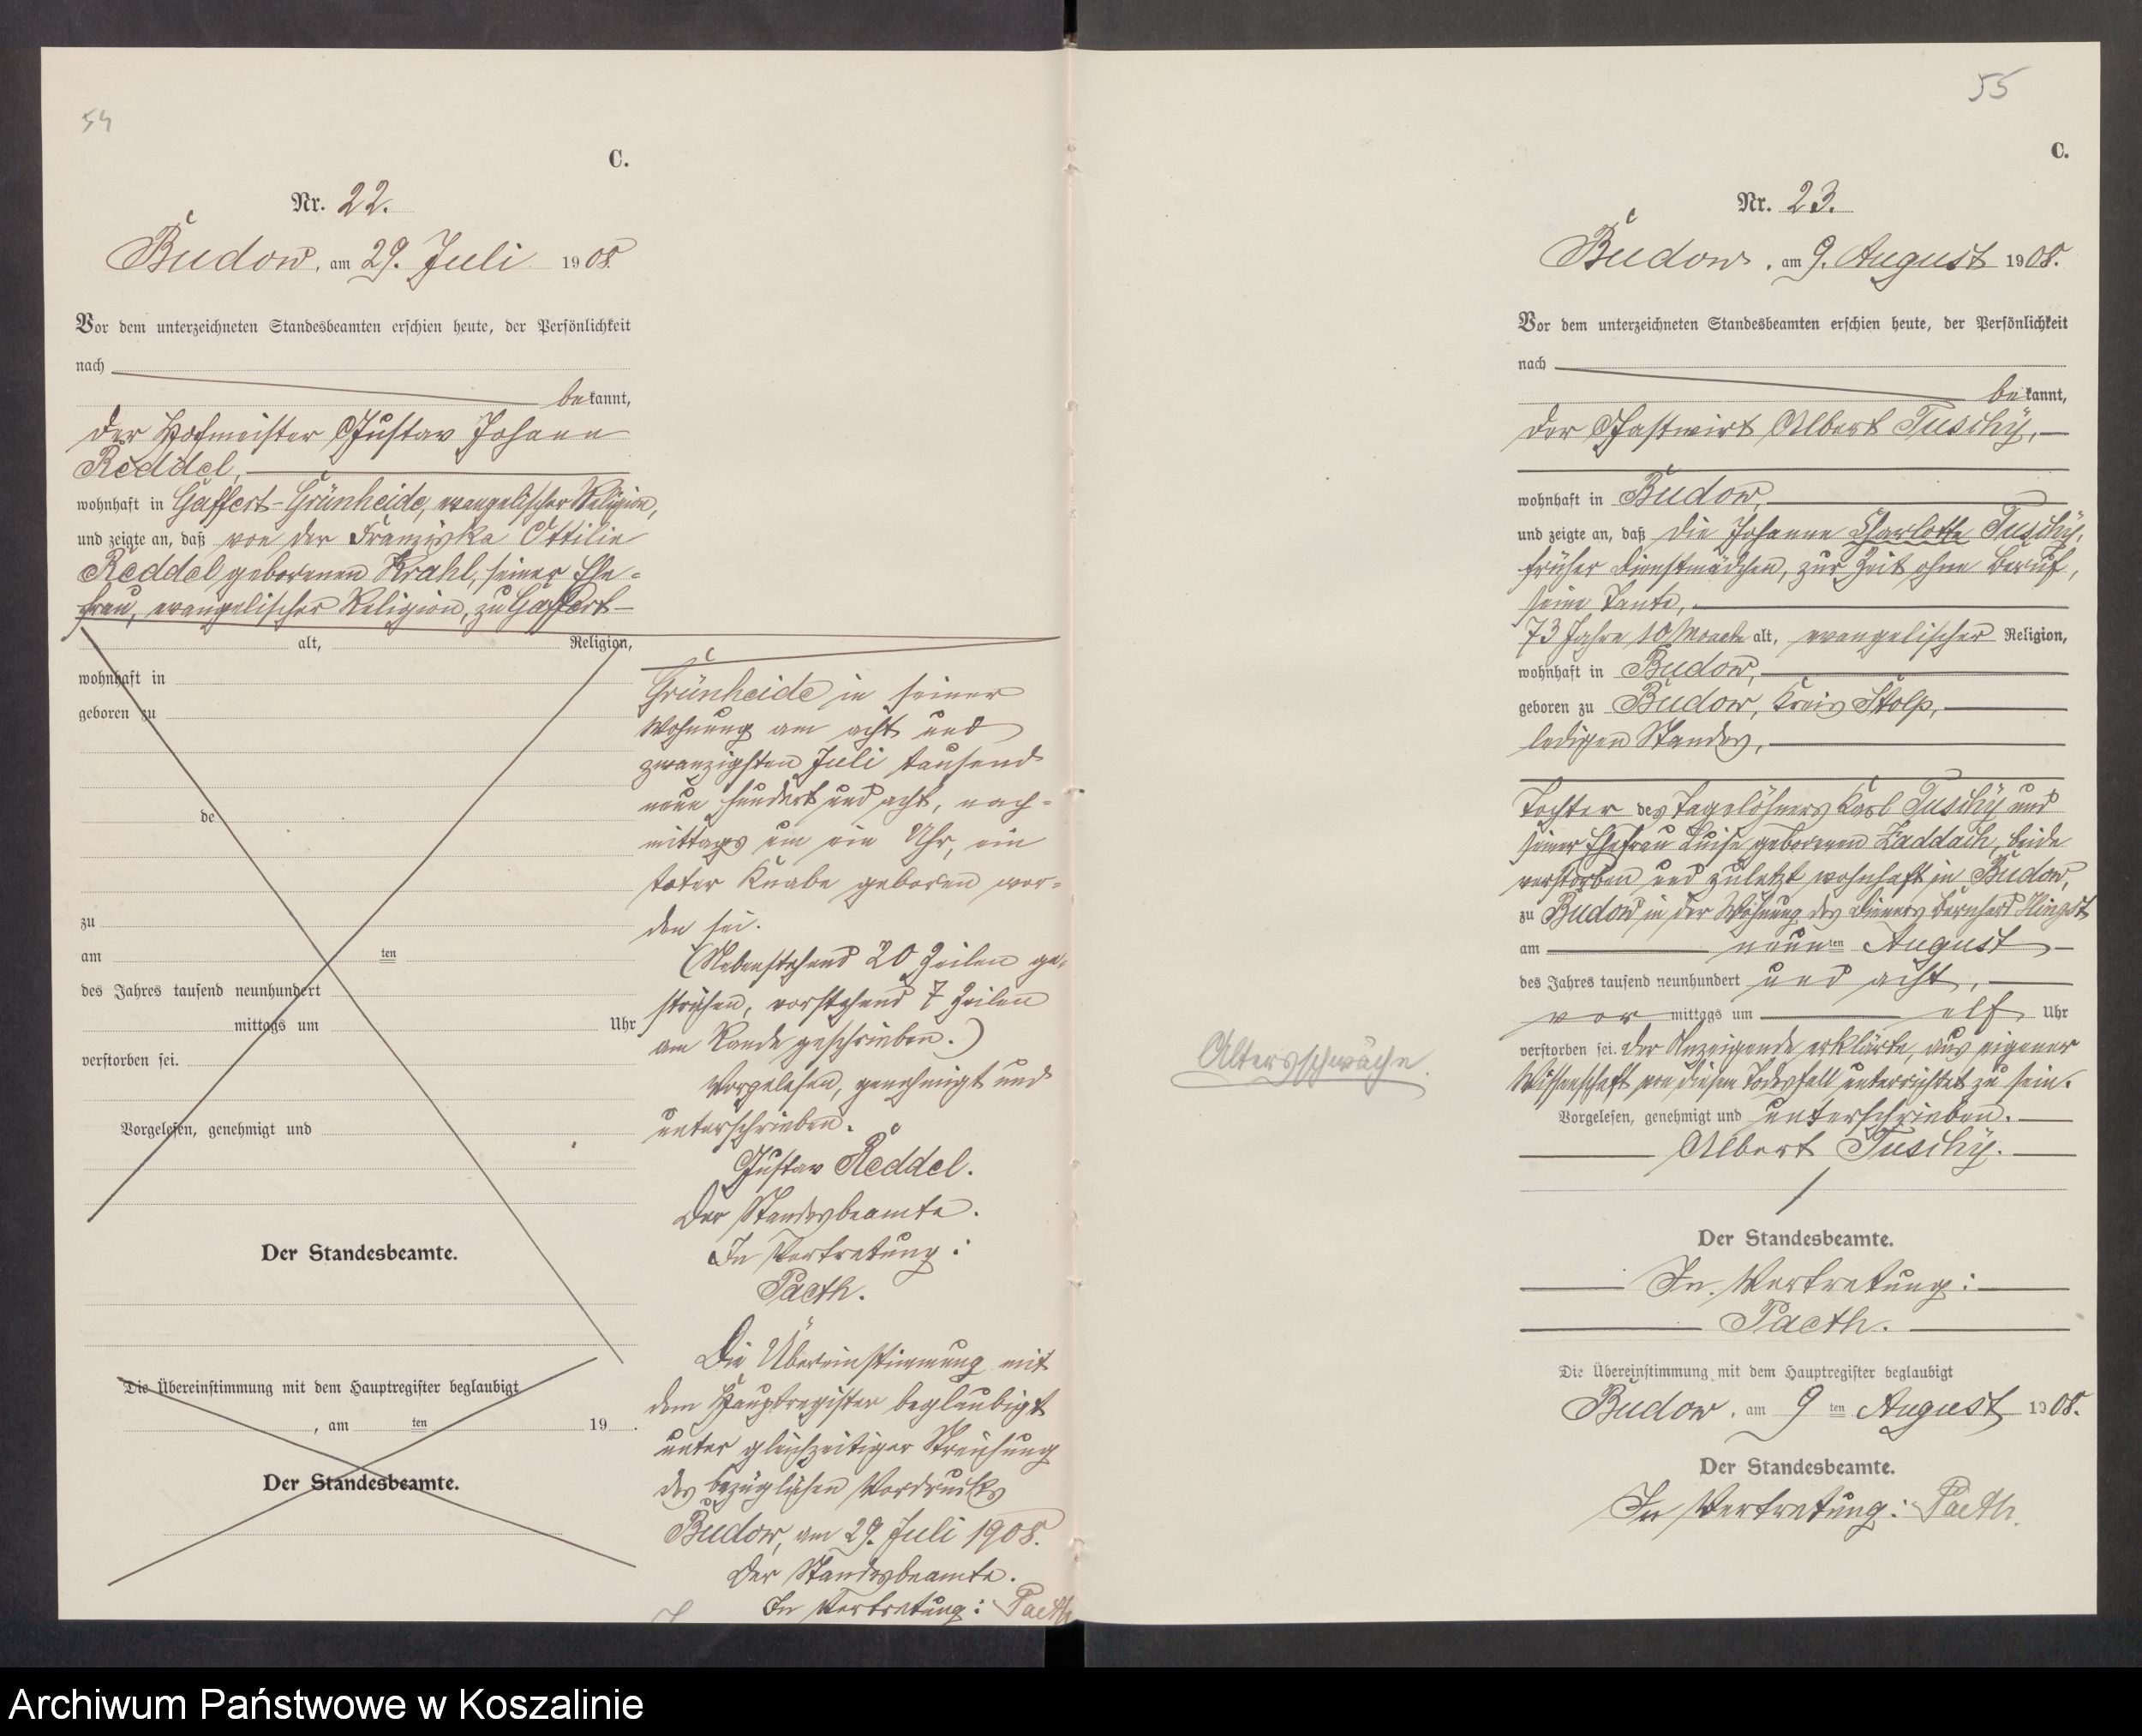 54
C.
Nr. 22.
Budow, am 29. Juli 1908.
Vor dem unterzeichneten Standesbeamten erschien heute, der Persönlichkeit
nach
bekannt,
der Hofmeister Gustav Johann
Reddel,
wohnhaft in Gaffert-Grünheide, evangelischer Religion,
und zeigte an, daß von der Franziska Ottilie
Reddel geborenen Krahl, seiner Ehe-
frau, evangelischer Religion, zu Gaffert-
alt, Religion,
wohnhaft in
geboren zu
de
zu
am ten
des Jahres tausend neunhundert
mittags um Uhr
verstorben sei.
Vorgelesen, genehmigt und
Der Standesbeamte.
Die Übereinstimmung mit dem Hauptregister beglaubigt
, am ten 19 .
Der Standesbeamte.
Grünheide in seiner
Wohnung am acht und
zwanzigsten Juli tausend
neun hundert und acht, nach-
mittags um ein Uhr, ein
toter Knabe geboren wor-
den sei.
(Nebenstehend 20 Zeilen ge-
strichen, vorstehend 7 Zeilen
am Rande geschrieben.)
Vorgelesen, genehmigt und
unterschrieben.
Gustav Reddel.
Der Standesbeamte.
In Vertretung:
Paeth.
Die Übereinstimmung mit
dem Hauptregister beglaubigt
unter gleichzeitiger Streichung
des bezüglichen Vordrucks
Budow, am 29. Juli 1908.
Der Standesbeamte.
In Vertretung: Paeth
55
C.
Nr. 23.
Budow, am 9. August 1908.
Vor dem unterzeichneten Standesbeamten erschien heute, der Persönlichkeit
nach
bekannt,
der Gastwirt Albert Tuschÿ,
wohnhaft in Budow,
und zeigte an, daß die Johanne Charlotte Tuschÿ,
früher Dienstmädchen, zur Zeit ohne Beruf,
seine Tante,
73 Jahre 10 Monate alt, evangelischer Religion,
wohnhaft in Budow,
geboren zu Budow, Kreis Stolp,
ledigen Standes,
Tochter des Tagelöhners Karl Tuschÿ und
seiner Ehefrau Luise geborenen Zaddach, beide
verstorben und zuletzt wohnhaft in Budow,
zu Budow in der Wohnung des Dieners Bernhard Hingst
am neunten August
des Jahres tausend neunhundert und acht,
vor mittags um elf Uhr
verstorben sei. Der Anzeigende erklärte, aus eigener
Wissenschaft von diesem Todesfall unterrichtet zu sein.
Vorgelesen, genehmigt und unterschrieben.
Albert Tuschÿ.
Altersschwäche.
Der Standesbeamte.
In Vertretung:
Paeth.
Die Übereinstimmung mit dem Hauptregister beglaubigt
Budow, am 9 ten August 1908.
Der Standesbeamte.
In Vertretung: Paeth.
Archiwum Państwowe w Koszalinie